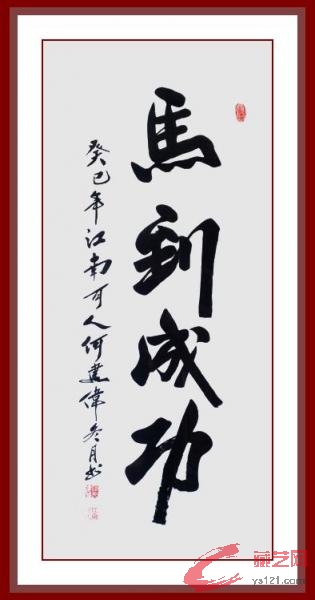 馬到成功
癸巳年江南可人何建偉冬月书
藏艺网
ys121.com